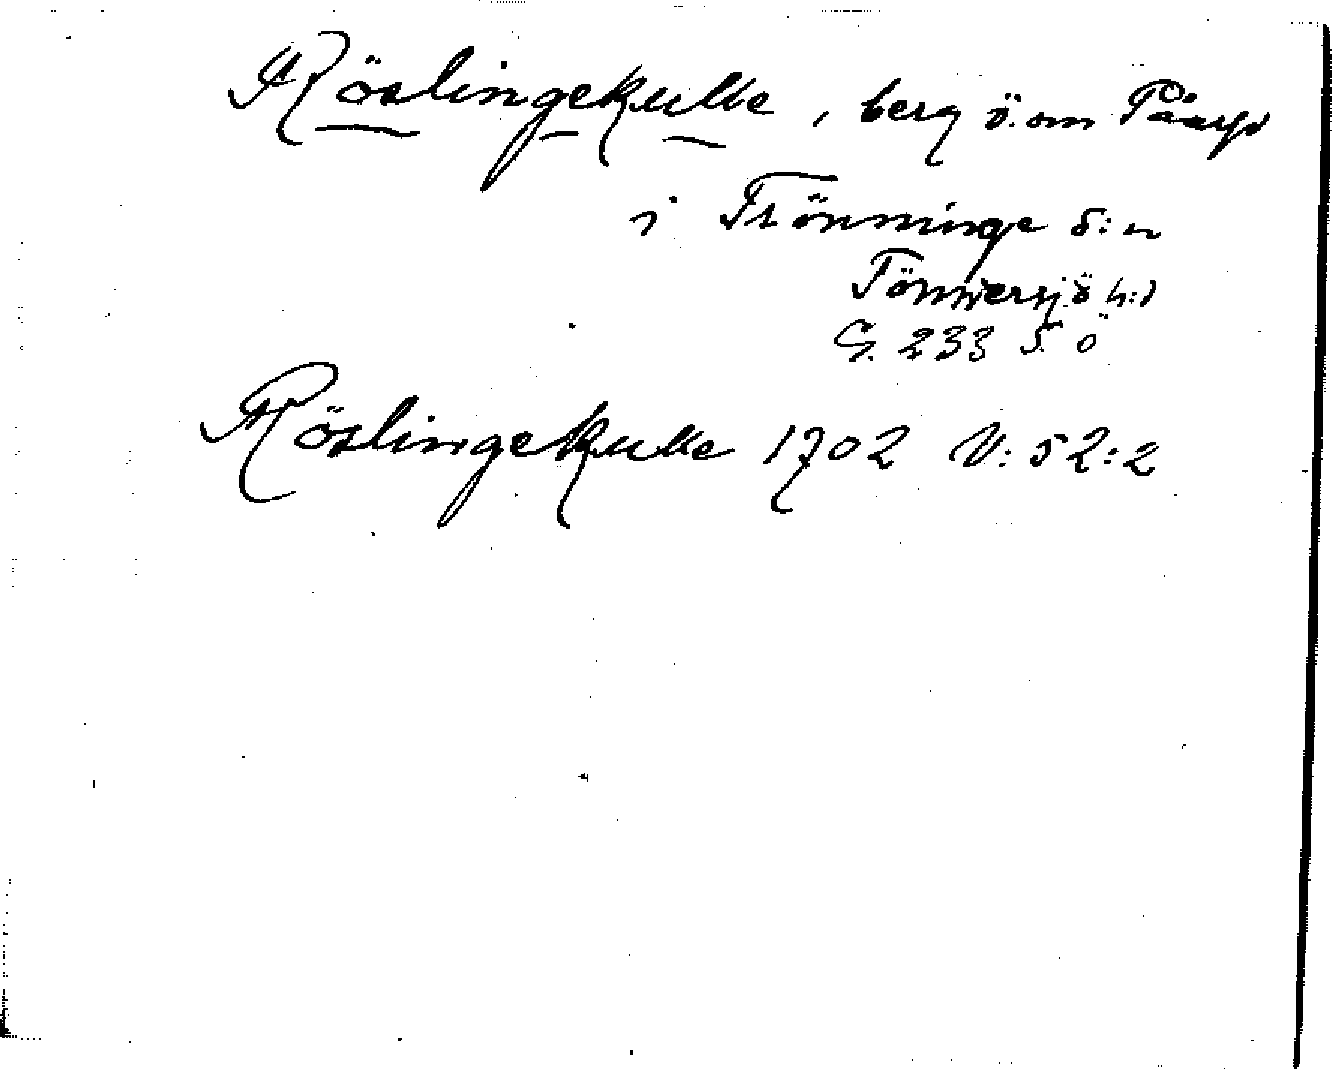 Röslingekulle, berg ö. om Påarp
i Trönninge s:n
Tönnersjö h:d
G. 233 S.Ö
Röslingekulle 1702 V: 52:2